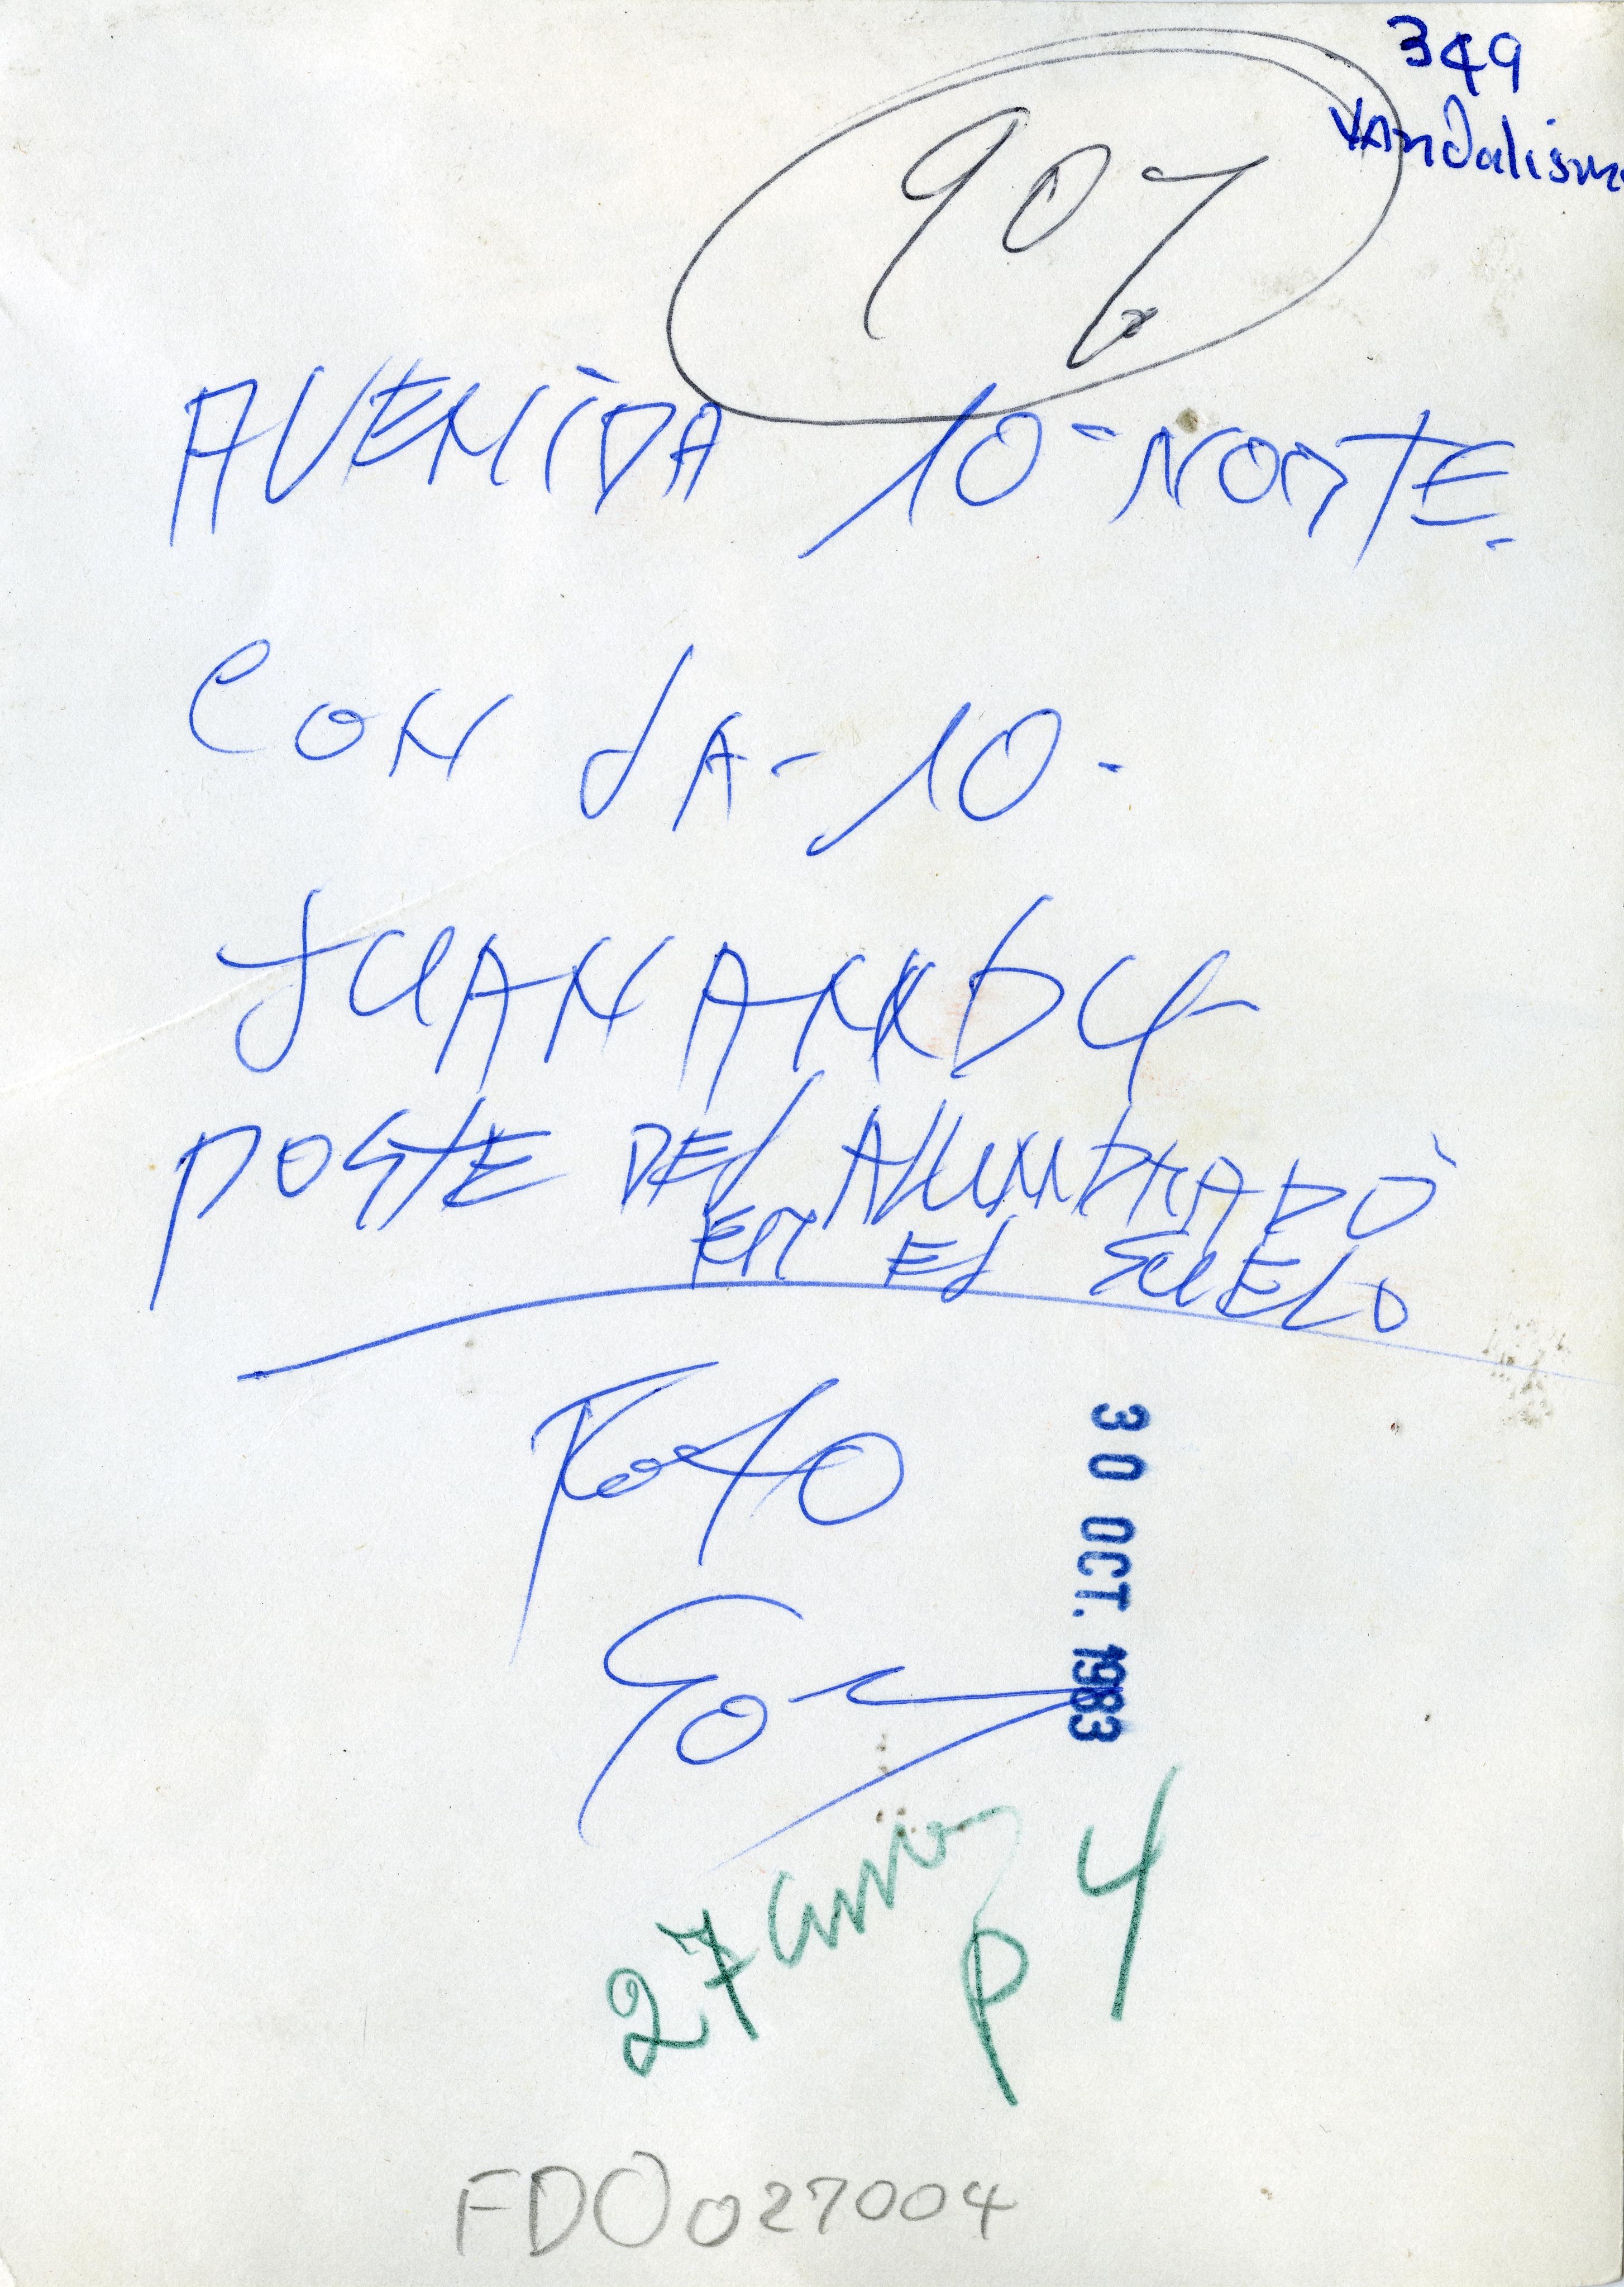 349
VAndalismo
90%
AVENIDA 10-NORTE.
CON LA-10-
JUANAMBU-
POSTE DEL ALUMBRADO
EN EL SUELO
Foto
30 OCT. 1983
27
p 4
FDO027004